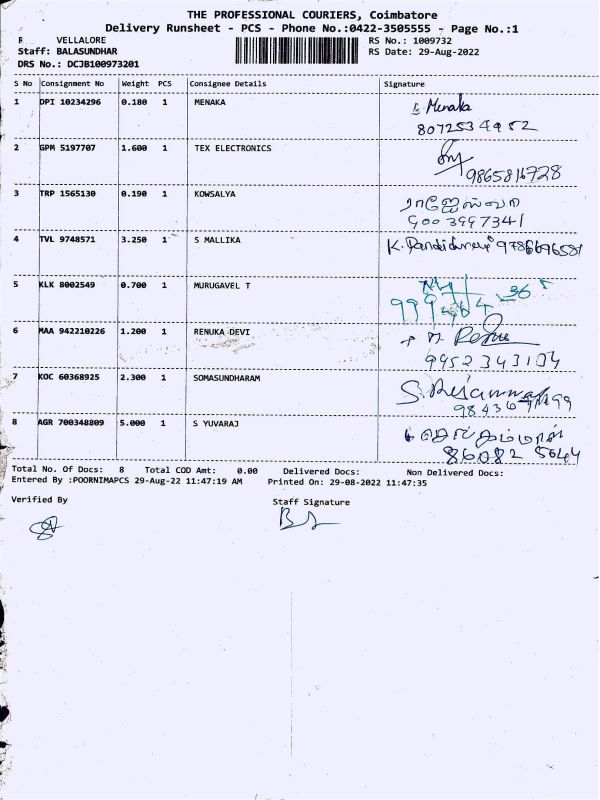 THE PROFESSIONAL COURIERS, Coimbatore
Delivery Runsheet - PCS - Phone No.:0422-3505555 - Page No.:1
R VELLALORE
RS No.: 1009732
Staff: BALASUNDHAR
RS Date: 29-Aug-2022
DRS No.: DCJB100973201
S No Consignment No Weight PCS Consignee Details Signature
1 DPI 10234296 0.180 1 MENAKA Menaka
8072534952
2 GPM 5197707 1.600 1 TEX ELECTRONICS
9865816728
3 TRP 1565130 0.190 1 KOWSALYA
9003997341
4 TVL 9748571 3.250 1 S MALLIKA
5 KLK 8002549 0.700 1 MURUGAVEL T
6 MAA 942210226 1.200 1 RENUKA DEVI
9952343104
7 KOC 60368925 2.300 1 SOMASUNDHARAM
8 AGR 700348809 5.000 1 S YUVARAJ
86082 5644
Total No. Of Docs: 8 Total COD Amt: 0.00 Delivered Docs: Non Delivered Docs:
Entered By :POORNIMAPCS 29-Aug-22 11:47:19 AM Printed On: 29-08-2022 11:47:35
Verified By Staff Signature